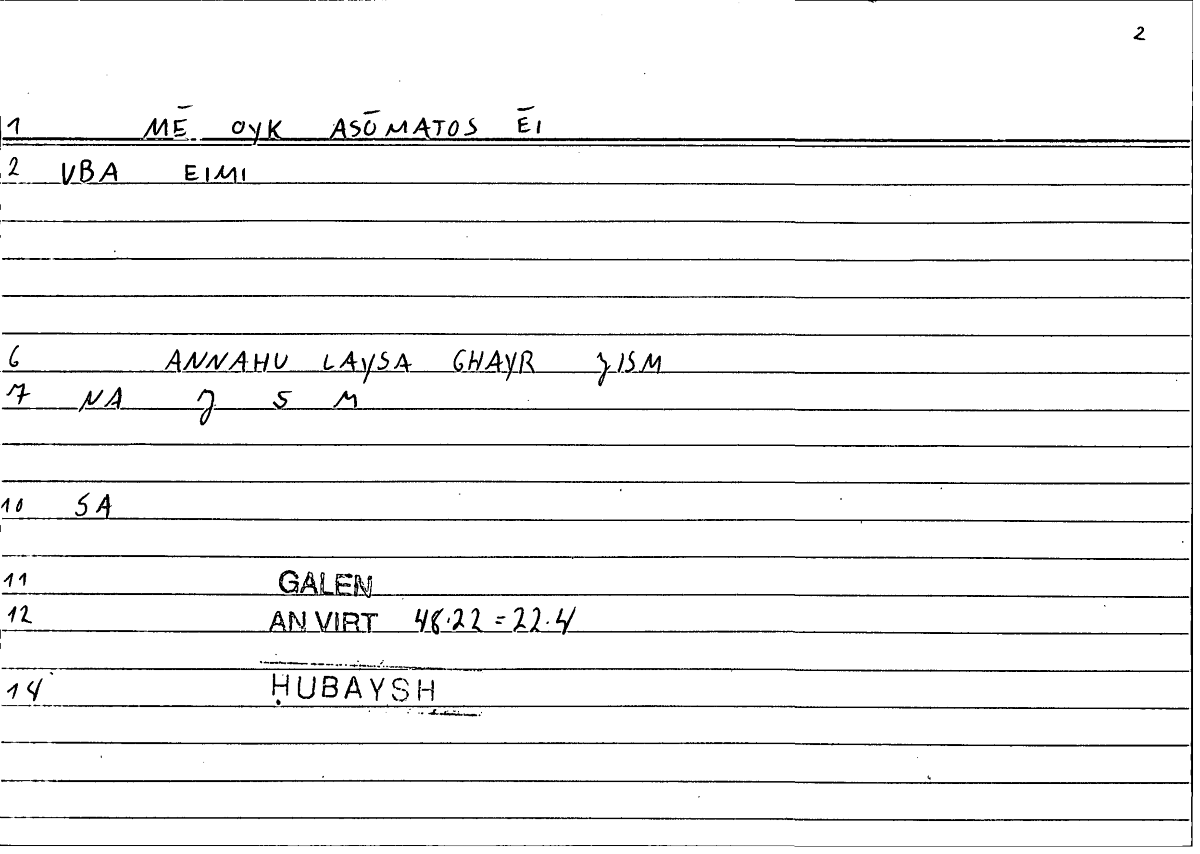 2
1 MĒ OYK ASŌMATOS ĒI
2 VBA EIMI
6 ANNAHU LAYSA GHAYR ʒISM
7 NA ʒ S M
10 SA
11 GALEN
12 AN VIRT 48.22 = 22.4
14 ḤUBAYSH